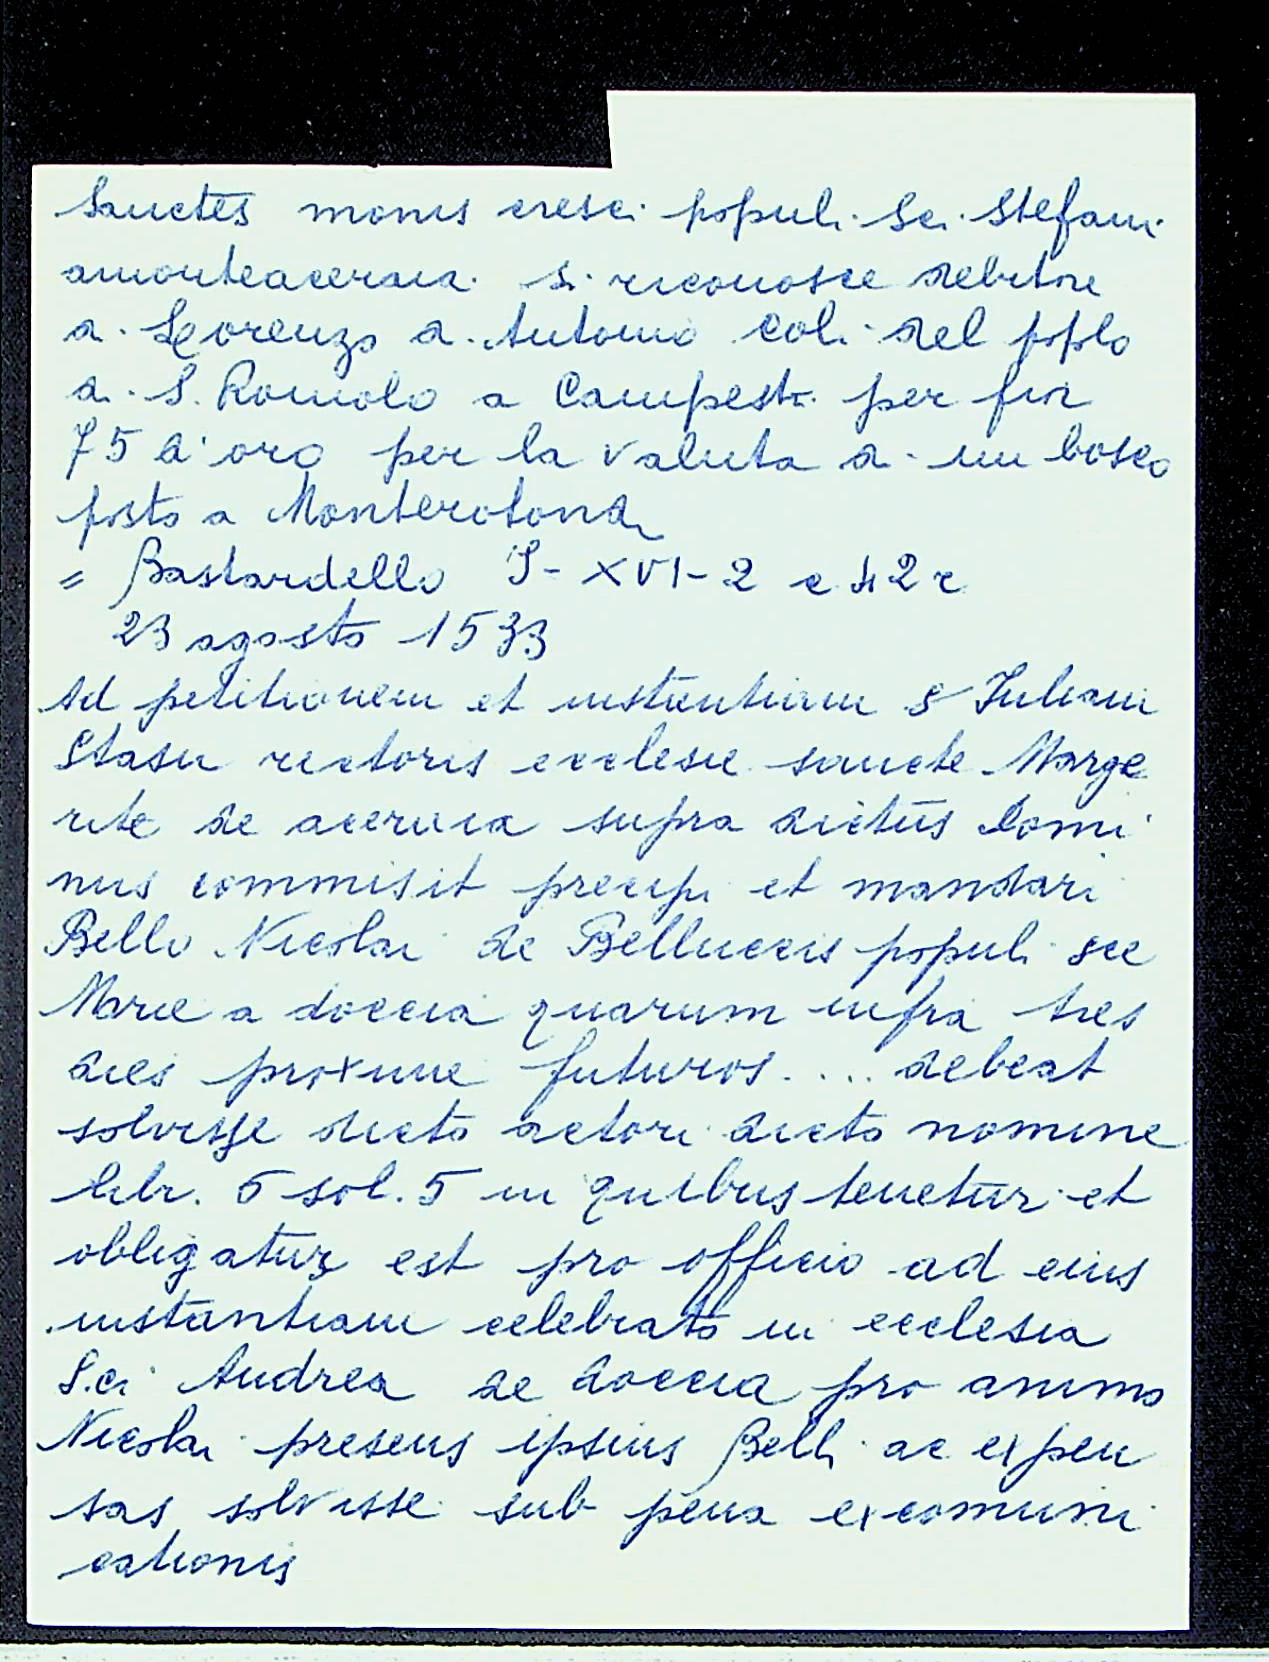 Sanctes monis cresci populi Sci Stefani
amonteaceraia si riconosce debitore
a Lorenzo d. Antonio coli del poplo
di S. Romolo a Campesti per fior
75 d'oro per la valuta di un bosco
posto a Monterotondo
= Bastardello S-XVI-2 c 42 r
23 agosto 1533
Ad petitionem et instantiam S Juliani
Stasii rectoris ecclesie sancte Marge
rite de aceraia supra dictus Domi
nus commisit precipi et mandari
Bello Nicolai de Belluccis populi sce
Marie a doccia quarum infra tres
dies proxime futuros .... debeat
solvisse dicto actori dicto nomine
libr. 6 sol. 5 in quibus tenetur et
obligatur est pro officio ad eius
instantiam celebrato in ecclesia
S.ci Andrea de doccia pro animo
Nicolai presens ipsius Belli ac expen
sas solvisse sub pena excomuni
cationis